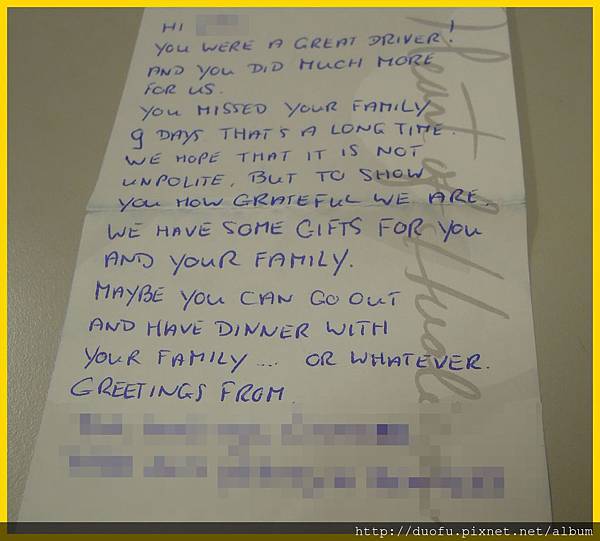 HI
YOU WERE A GREAT DRIVER!
AND YOU DID MUCH MORE
FOR US.
YOU MISSED YOUR FAMILY
9 DAYS THAT'S A LONG TIME.
WE HOPE THAT IT IS NOT
UNPOLITE, BUT TO SHOW
YOU HOW GRATEFUL WE ARE.
WE HAVE SOME GIFTS FOR YOU
AND YOUR FAMILY.
MAYBE YOU CAN GO OUT
AND HAVE DINNER WITH
YOUR FAMILY .... OR WHATEVER.
GREETINGS FROM.
Heart of
http://duofu.pixnet.net/album